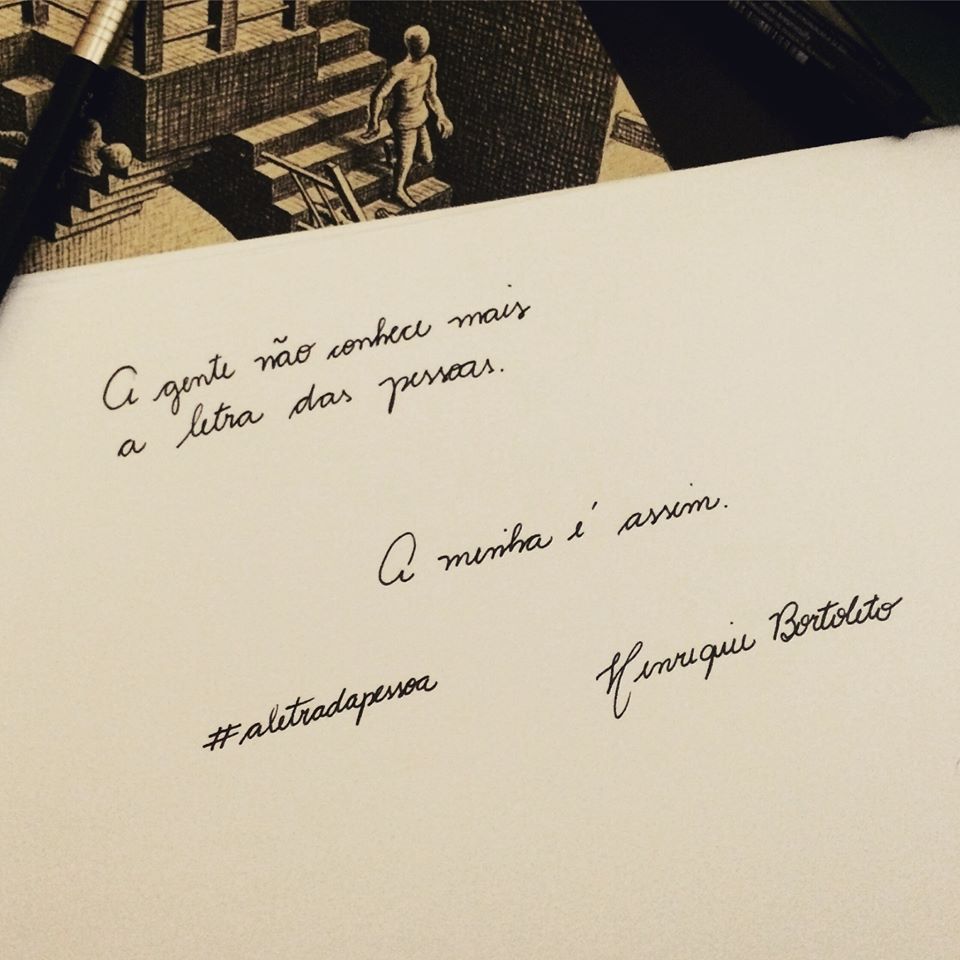 A gente não conhece mais
a letra das pessoas.
A minha é assim.
Henrique Bortoleto
#aletradapessoa